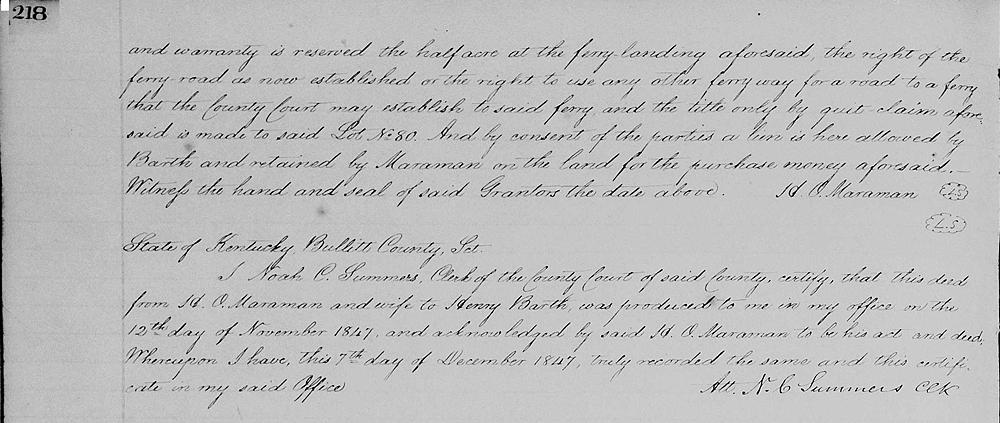 218
and warranty is reserved the half acre at the ferry-landing aforesaid, the right of the
ferry-road as now established or the right to use any other ferry way for a road to a ferry
that the County Court may establish to said ferry, and the title only by quit claim afore-
said is made to said Lot No 80. And by consent of the parties a lien is here allowed by
Barth and retained by Maraman on the land for the purchase money aforesaid.—
Witness the hand and seal of said Grantors the date above. H. O. Maraman L.S
L.S
State of Kentucky, Bullitt County, Sct.
I Noah C. Summers, Clerk of the County Court of said County, certify, that this deed
from H. O. Maraman and wife to Henry Barth, was produced to me in my office on the
12th day of November 1847, and acknowledged by said H. O. Maraman to be his act and deed.
Whereupon I have, this 7th day of December 1847, truly recorded the same and this certifi-
cate in my said Office
Att. N. C Summers CCK